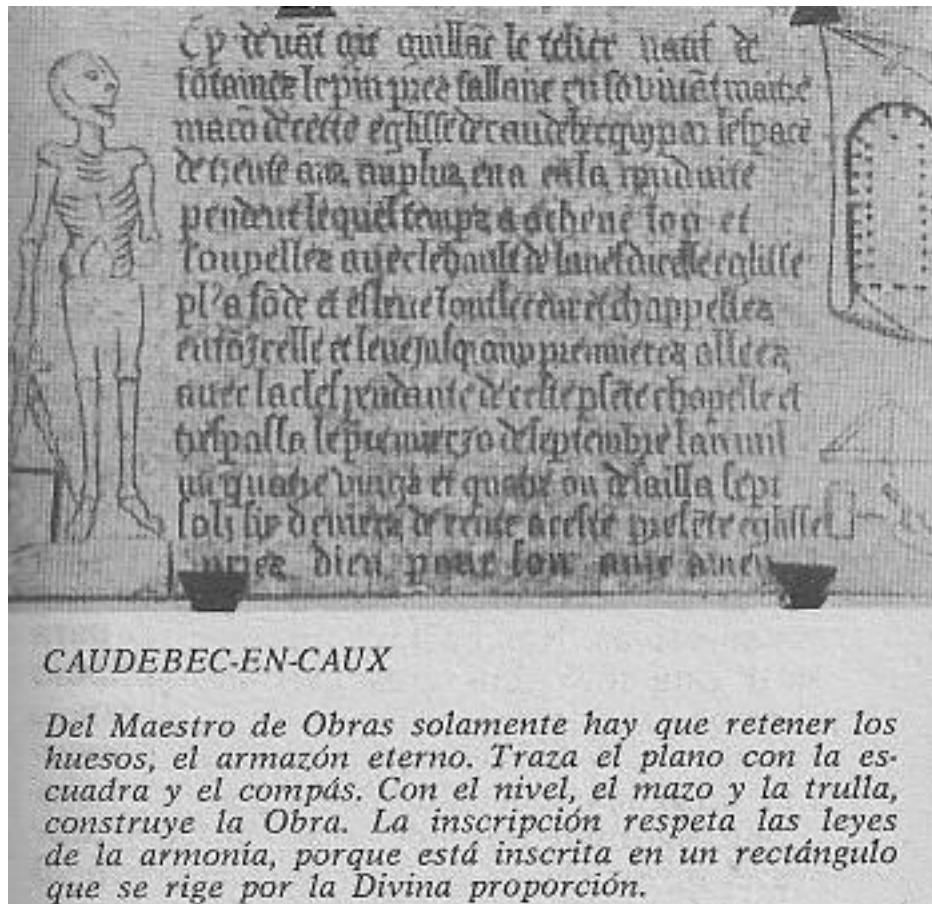 Cy devāt gist guillāe le tellier natif de
fōtaines le pin pres fallaise en sō vivāt maitre
macō de ceste eglisse de caudebec qui par lespace
de trente ans ou plus en a eu la conduite
pendent lequel temps a acheve
avec le hault de la nef dicelle eglisse
fōde et esleve tout le ceur et chappelles
et leve jusqau premieres allees
avec la clef pendante de ceste psēte chapelle et
trespassa le premier de septembre lan mil
quatre vings et quatre
solz six deniers de rente a ceste presēte eglisse
priez dieu pour son ame amen
CAUDEBEC-EN-CAUX
Del Maestro de Obras solamente hay que retener los
huesos, el armazón eterno. Traza el plano con la es-
cuadra y el compás. Con el nivel, el mazo y la trulla,
construye la Obra. La inscripción respeta las leyes
de la armonía, porque está inscrita en un rectángulo
que se rige por la Divina proporción.